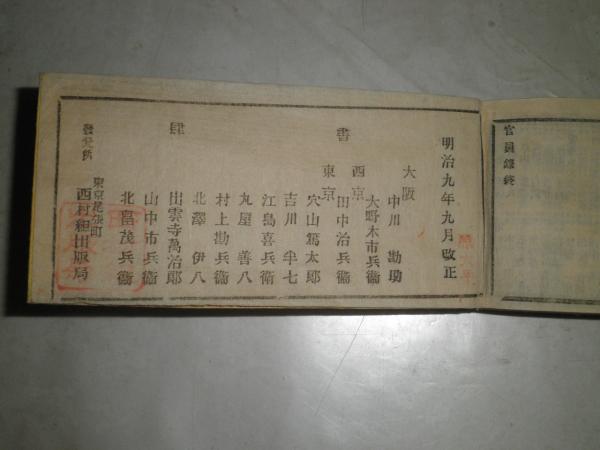 官員録終
明治九年九月改正
大阪
中川勘助
大野木市兵衞
西京
書
田中治兵衞
東京
穴山篤太郎
吉川半七
江島喜兵衞
丸屋善八
肆
村上勘兵衞
北澤伊八
出雲寺萬治郎
山中市兵衞
北畠茂兵衞
發兌所
東京尾張町
西村組出版局